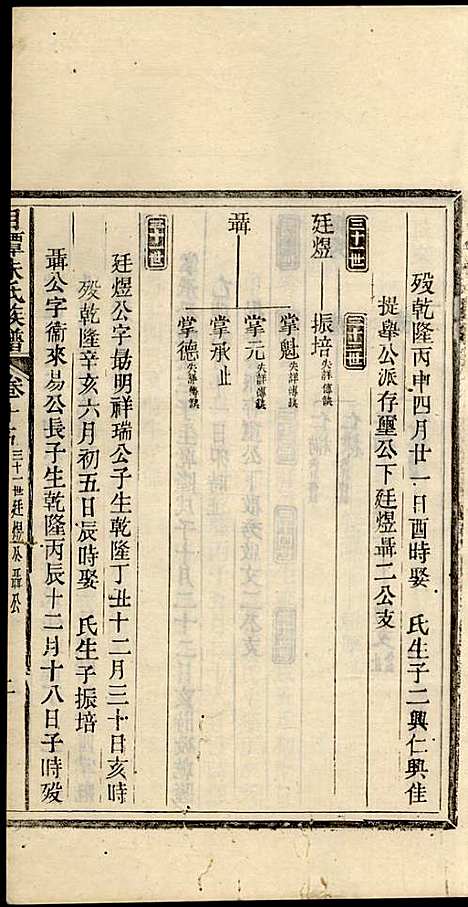 歿乾隆丙申四月廿一日酉時娶　氏生子二興仁興佳
提舉公派存璽公下廷煜聶二公支
三十一世　三十二世
廷煜　振培失詳傳缺
掌魁失詳傳缺
聶　掌元失詳傳缺
掌承止
掌德失詳傳缺
三十一世
廷煜公字昮明祥瑞公子生乾隆丁丑十二月三十日亥時
歿乾隆辛亥六月初五日辰時娶　氏生子振培
聶公字衞來易公長子生乾隆丙辰十二月十八日子時歿
月潭朱氏族譜　卷十　三十一世廷煜公聶公